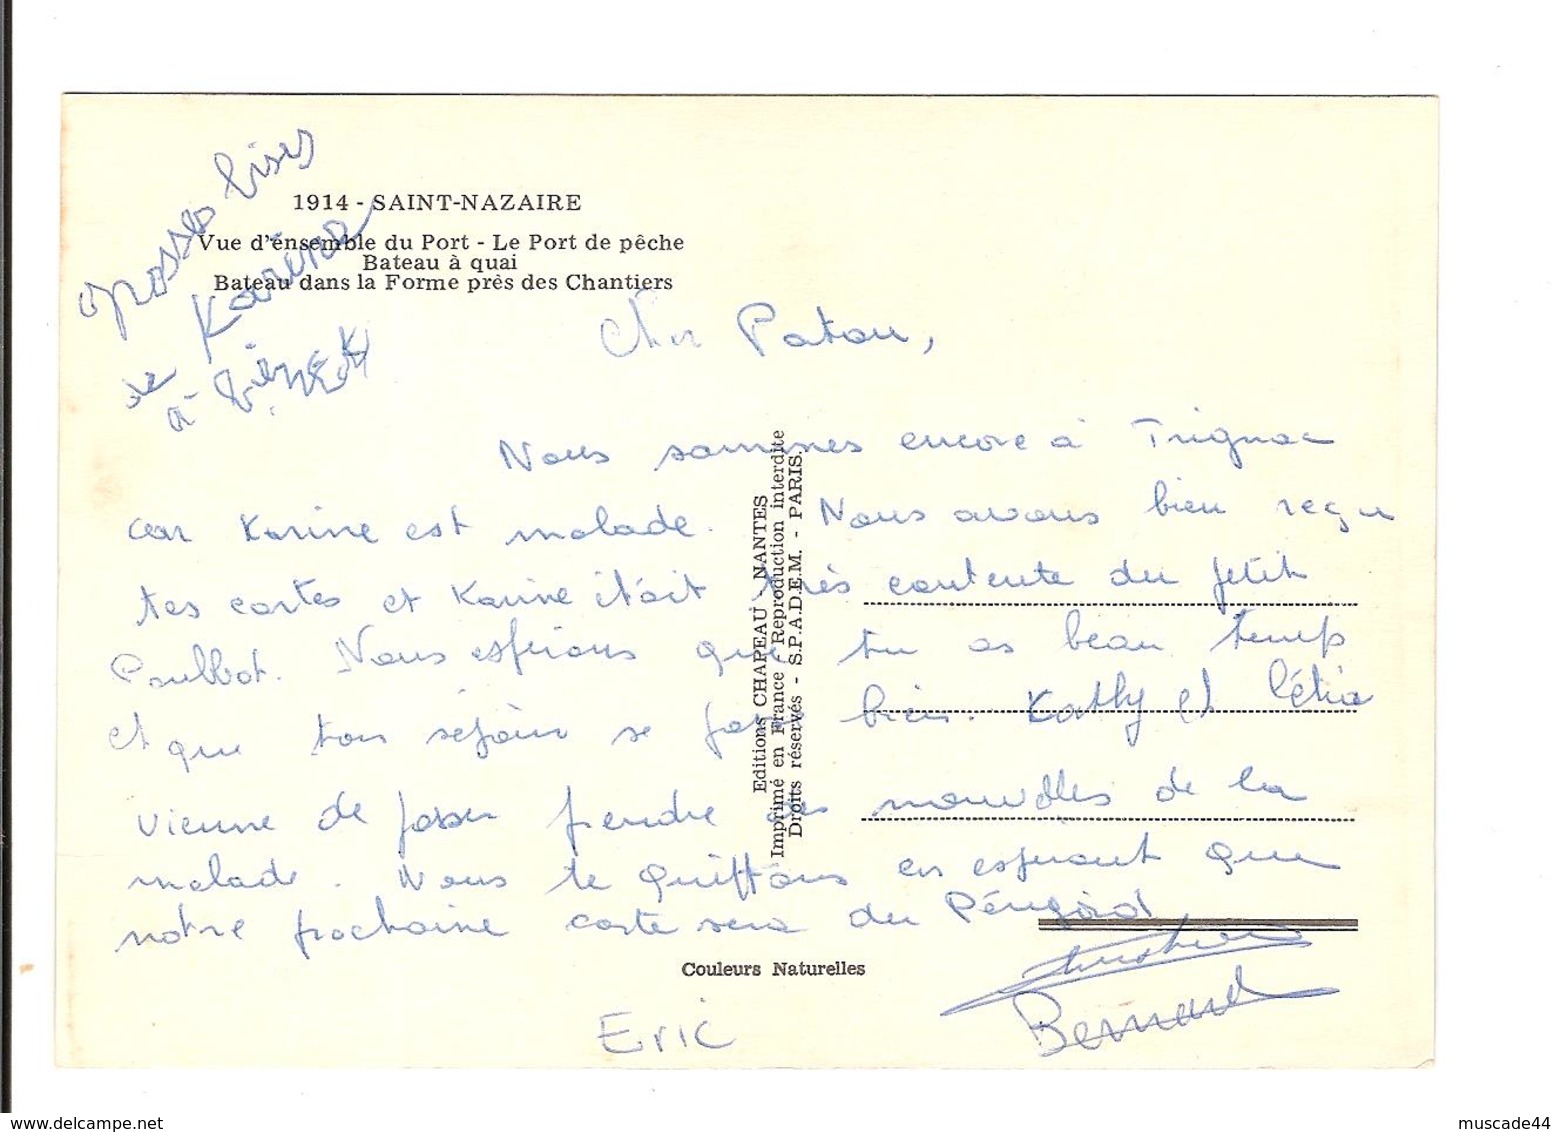 grosses bises
de Karine
à
1914 - SAINT-NAZAIRE
Vue d'ensemble du Port - Le Port de pêche
Bateau à quai
Bateau dans la Forme près des Chantiers
Cher Patou,
Nous sommes encore à Trignac
car Karine est malade. Nous avons bien reçu
tes cartes et Karine était très contente du petit
Poulbot. Nous espérons que tu as beau temps
et que ton séjour se passe bien. Kathy et Létia
vienne de passer prendre des nouvelles de la
malade. Nous te quittons en espérant que
notre prochaine carte sera du Périgord
Editions CHAPEAU - NANTES
Imprimé en France - Reproduction interdite
Droits réservés - S.P.A.D.E.M. - PARIS.
Couleurs Naturelles
Eric
Bernard
muscade44 delcampe.net